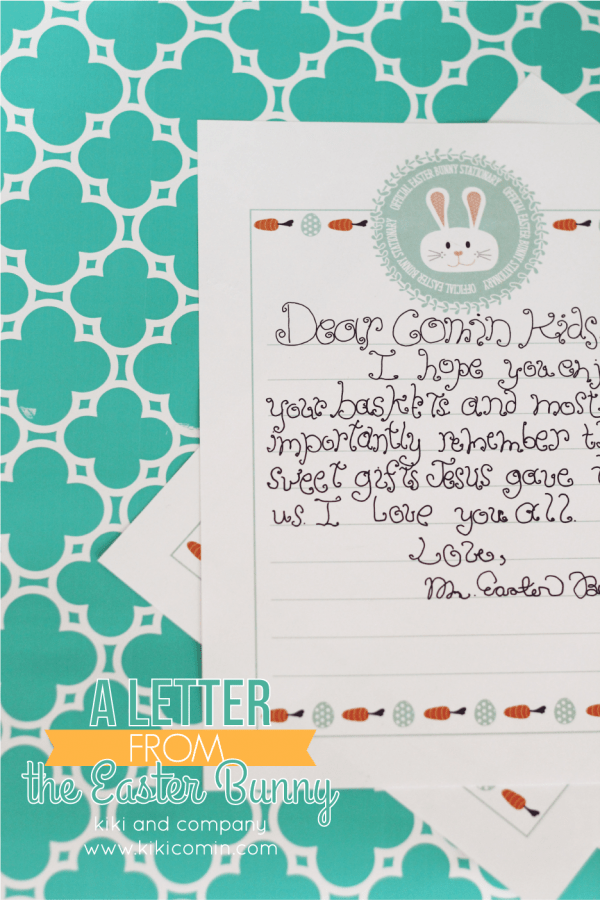 OFFICIAL EASTER BUNNY STATIONARY
OFFICIAL EASTER BUNNY STATIONARY
OFFICIAL EASTER BUNNY STATIONARY
Dear Comin Kids
I hope you enj
your baskets and most
importantly remember
sweet gifts Jesus gave
us. I Love you all.
Love,
Mr. Easter
A LETTER
FROM
the Easter Bunny
kiki and company
www.kikicomin.com